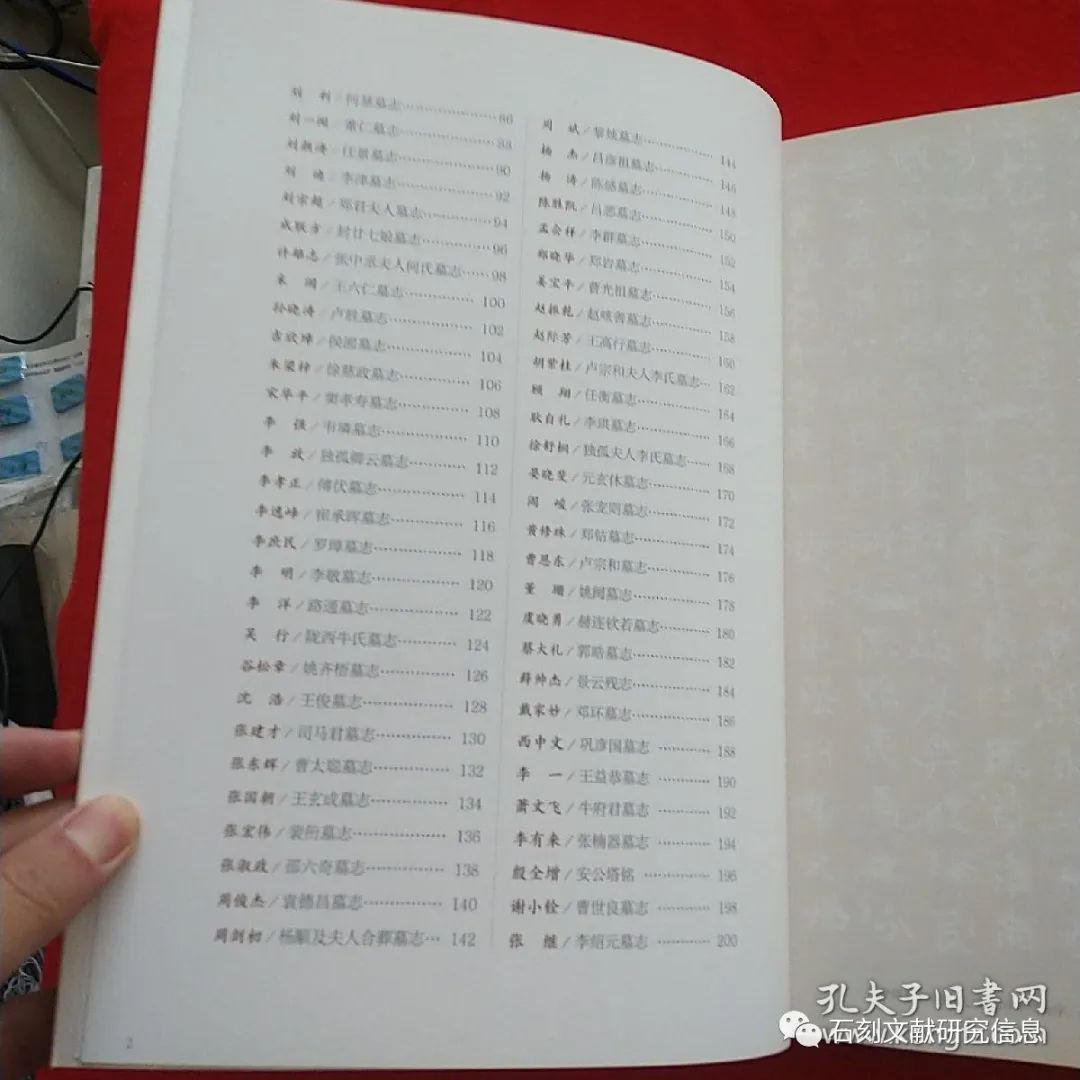 刘　利／何慧墓志………………86
刘一闻／董仁墓志………………88
刘颜涛／任景墓志………………90
刘　迪／李津墓志………………92
刘宗超／郑君夫人墓志…………94
成联方／封廿七娘墓志…………96
许雄志／张中丞夫人何氏墓志……98
朱　阁／王六仁墓志……………100
孙晓涛／卢胜墓志………………102
吉欣璋／侯　墓志………………104
朱梁梓／徐慈政墓志……………106
宋华平／窦孝寿墓志……………108
李　强／韦璘墓志………………110
李　放／独孤卿云墓志…………112
李孝正／傅伏墓志………………114
李逸峰／崔承晖墓志……………116
李庶民／罗璋墓志………………118
李　明／李敬墓志………………120
李　洋／路通墓志………………122
吴　行／陇西牛氏墓志…………124
谷松章／姚齐梧墓志……………126
沈　浩／王俊墓志………………128
张建才／司马君墓志……………130
张东辉／曹太聪墓志……………132
张国朝／王玄成墓志……………134
张宏伟／裴衎墓志………………136
张淑政／邵六奇墓志……………138
周俊杰／袁德昌墓志……………140
周剑初／杨顺及夫人合葬墓志…142
周　斌／黎烛墓志………………144
杨　杰／吕彦祖墓志……………146
杨　涛／陈感墓志………………148
陈胜凯／吕恶墓志………………150
孟会祥／李群墓志………………152
郑晓华／郑岩墓志………………154
姜宝平／费光祖墓志……………156
赵振乾／赵　善墓志……………158
赵际芳／王高行墓志……………160
胡紫桂／卢宗和夫人李氏墓志…162
顾　翔／任衡墓志………………164
耿自礼／李琪墓志………………166
徐舒桐／独孤夫人李氏墓志……168
晏晓斐／元玄休墓志……………170
阎　峻／张变则墓志……………172
黄修珠／郑钴墓志………………174
曹恩东／卢宗和墓志……………176
董　珊／姚闿墓志………………178
虞晓勇／赫连钦若墓志…………180
蔡大礼／郭晧墓志………………182
薛帅杰／景云残志………………184
戴家妙／邓环墓志………………186
西中文／巩彦国墓志……………188
李　一／王益恭墓志……………190
萧文飞／牛府君墓志……………192
李有来／张楠器墓志……………194
殷全增／安公塔铭………………196
谢小铨／曹世良墓志……………198
张　继／李绍元墓志……………200
2
孔夫子旧书网
石刻文献研究信息